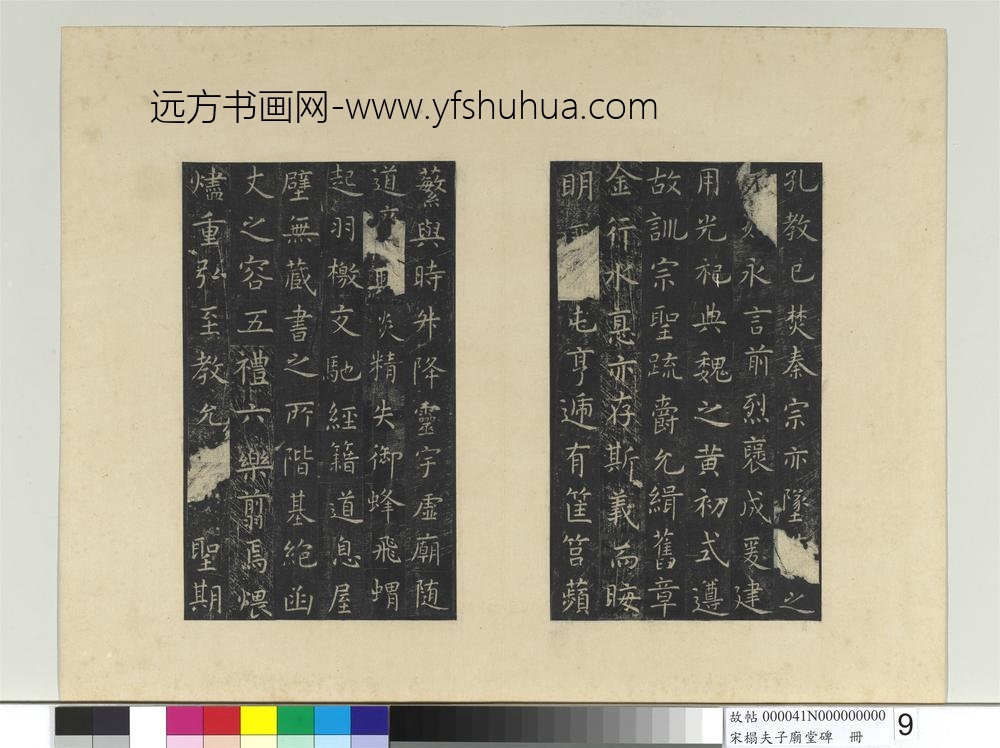 远方书画网-www.yfshuhua.com
孔教已焚秦宗亦墜之
永言前烈襃成爰建
用光祀典魏之黄初式遵
故訓宗聖疏爵允緝舊章
金行水悳亦存斯義而晦
明屯亨遞有筐筥蘋
蘩與時升降靈宇虛廟隨
道興炎精失御蜂飛蝟
起羽檄交馳經籍道息屋
壁無藏書之所階基絕函
丈之容五禮六樂翦焉煨
燼重弘至教允聖期
故帖 000041N000000000
宋榻夫子廟堂碑 冊
9